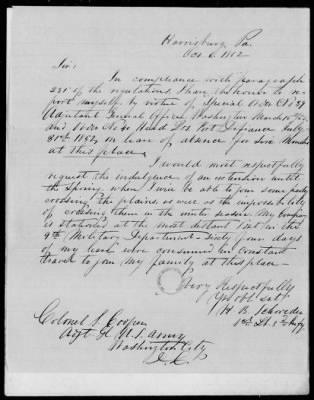 Harrisburg Pa.
Oct 6, 1852
Sir:
In compliance with paragraph
of the regulations I have the honor to re-
port myself, by virtue of Special Order No 89
Adjutant General Office, Washington March
and Order No 40 Head Qrs Fort Defiance July
31st 1852, on leave of absence for Six Months
at this place.
I would most respectfully
request the indulgence of an extension until
the Spring when I will be able to join some party
crossing the plains as well as the impossibility
of crossing them in the winter season. My Company
is stationed at the most distant Post in the
9th Military Department - Sixty four days
of my leave were consumed in constant
travel to join my family at this place -
Very Respectfully
Yr Obt Sevt
H B Schroeder
1st Lt 3d Infy
Colonel S. Cooper
Adjt Gl U.S. Army
Washington City
D.C.